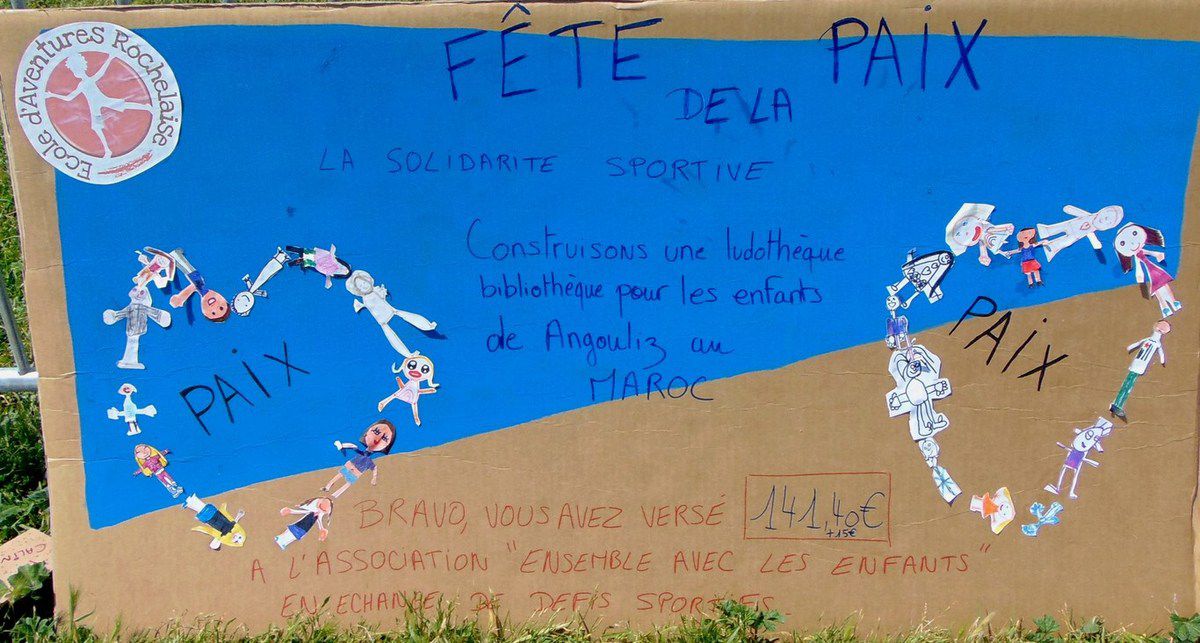 Ecole d'Aventures Rochelaise
FÊTE DE LA PAIX
LA SOLIDARITE SPORTIVE
Construisons une ludothèque
bibliothèque pour les enfants
de Angouliz au
MAROC
PAIX
PAIX
BRAVO, VOUS AVEZ VERSÉ 141,40€
+15€
A L'ASSOCIATION "ENSEMBLE AVEC LES ENFANTS"
EN ECHANGE DE DEFIS SPORTIFS.